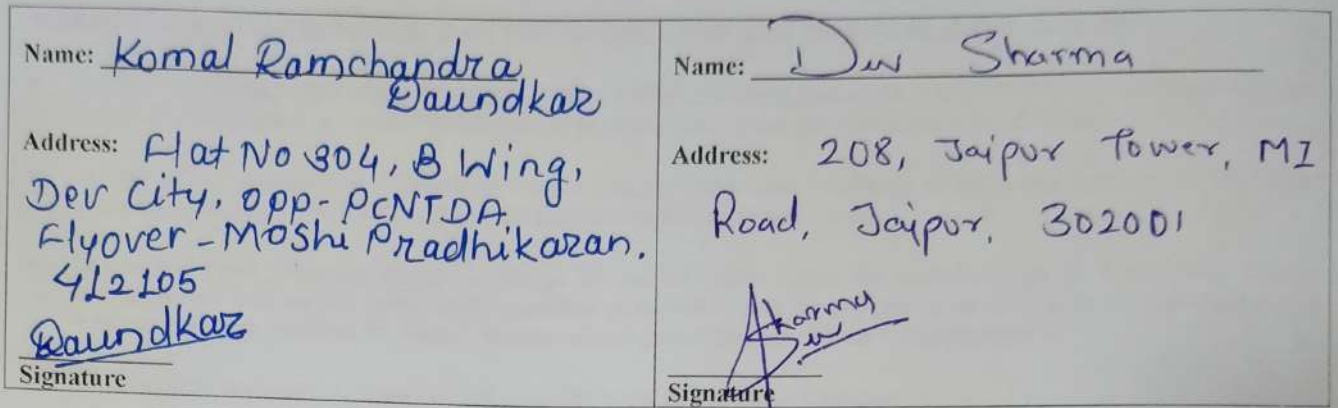 Name: Komal Ramchandra
Daundkar
Address: Flat No 304, B Wing,
Dev City, opp- PCNTDA
Flyover - Moshi Pradhikaran.
412105
Daundkar
Signature
Name: Dev Sharma
Address: 208, Jaipur Tower, MI
Road, Jaipur, 302001
Sharma
Dev
Signature